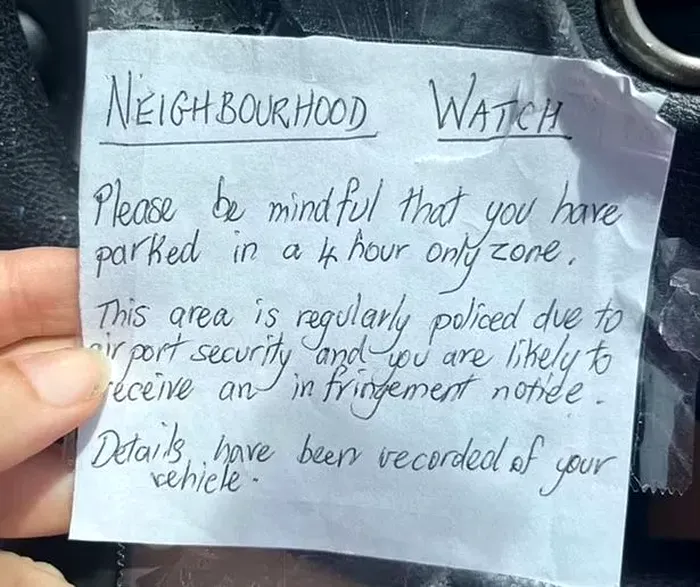 NEIGHBOURHOOD WATCH
Please be mindful that you have
parked in a 4 hour only zone.
This area is regularly policed due to
airport security and you are likely to
receive an infringement notice.
Details have been recorded of your
vehicle.